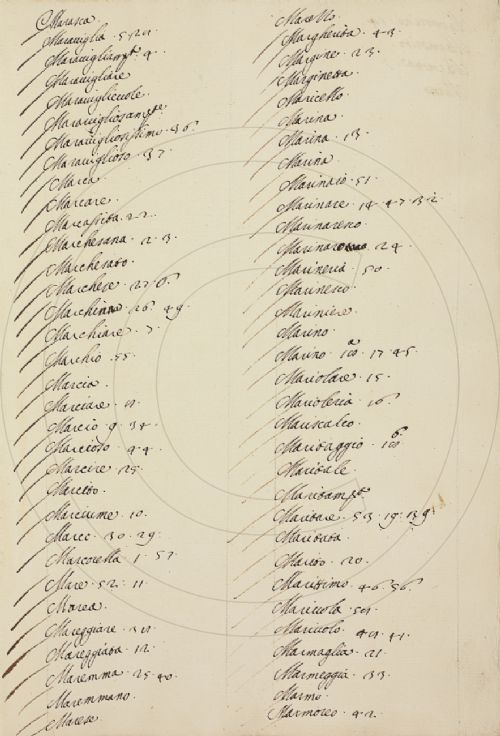 Marasca
Maraviglia . 5.
Maravigliam.te . 9 .
Maravigliare
Maraviglievole .
Maravigliosam.te
Maravigliosissimo . 36.
Maraviglioso . 37 .
Marca .
Marcare .
Marcassita . 22 .
Marchesana . 2 . 3 .
Marchesato .
Marchese . 
Marchiana . 26 . 49 .
Marchiare . 7 .
Marchio . 55 .
Marcia .
Marciare . 
Marcio . 9 . 34 .
Marcioso . 44 .
Marcire . 25 .
Marcito .
Marciume . 10 .
Marco . 30 . 29 .
Marcorella . 1 . 57 .
Mare . 52 . 11 .
Marea .
Mareggiare . 
Mareggiata . 12 .
Maremma . 25 . 40 .
Maremmano .
Marese .
Maretto .
Margherita . 43 .
Margine . 23 .
Marginetta .
Maricello .
Marina .
Marina . 13 .
Marina .
Marinaio . 51 .
Marinare . 14 . 47 .
Marinaresco .
24 .
Marineria . 50 .
Marinesco .
Mariniere .
Marino .
Marino . 17 . 45 .
Mariolare . 15 .
Marioleria . 16 .
Mariscalco .
Maritaggio .
Maritale .
Maritam.te
Maritare . 53 . 19 .
Maritata .
Marito . 20 .
Marittimo . 46 . 56 .
Mariuola .
Mariuolo . 49 . 41 .
Marmaglia . 21 .
Marmeggia . 33 .
Marmo .
Marmoreo . 42 .